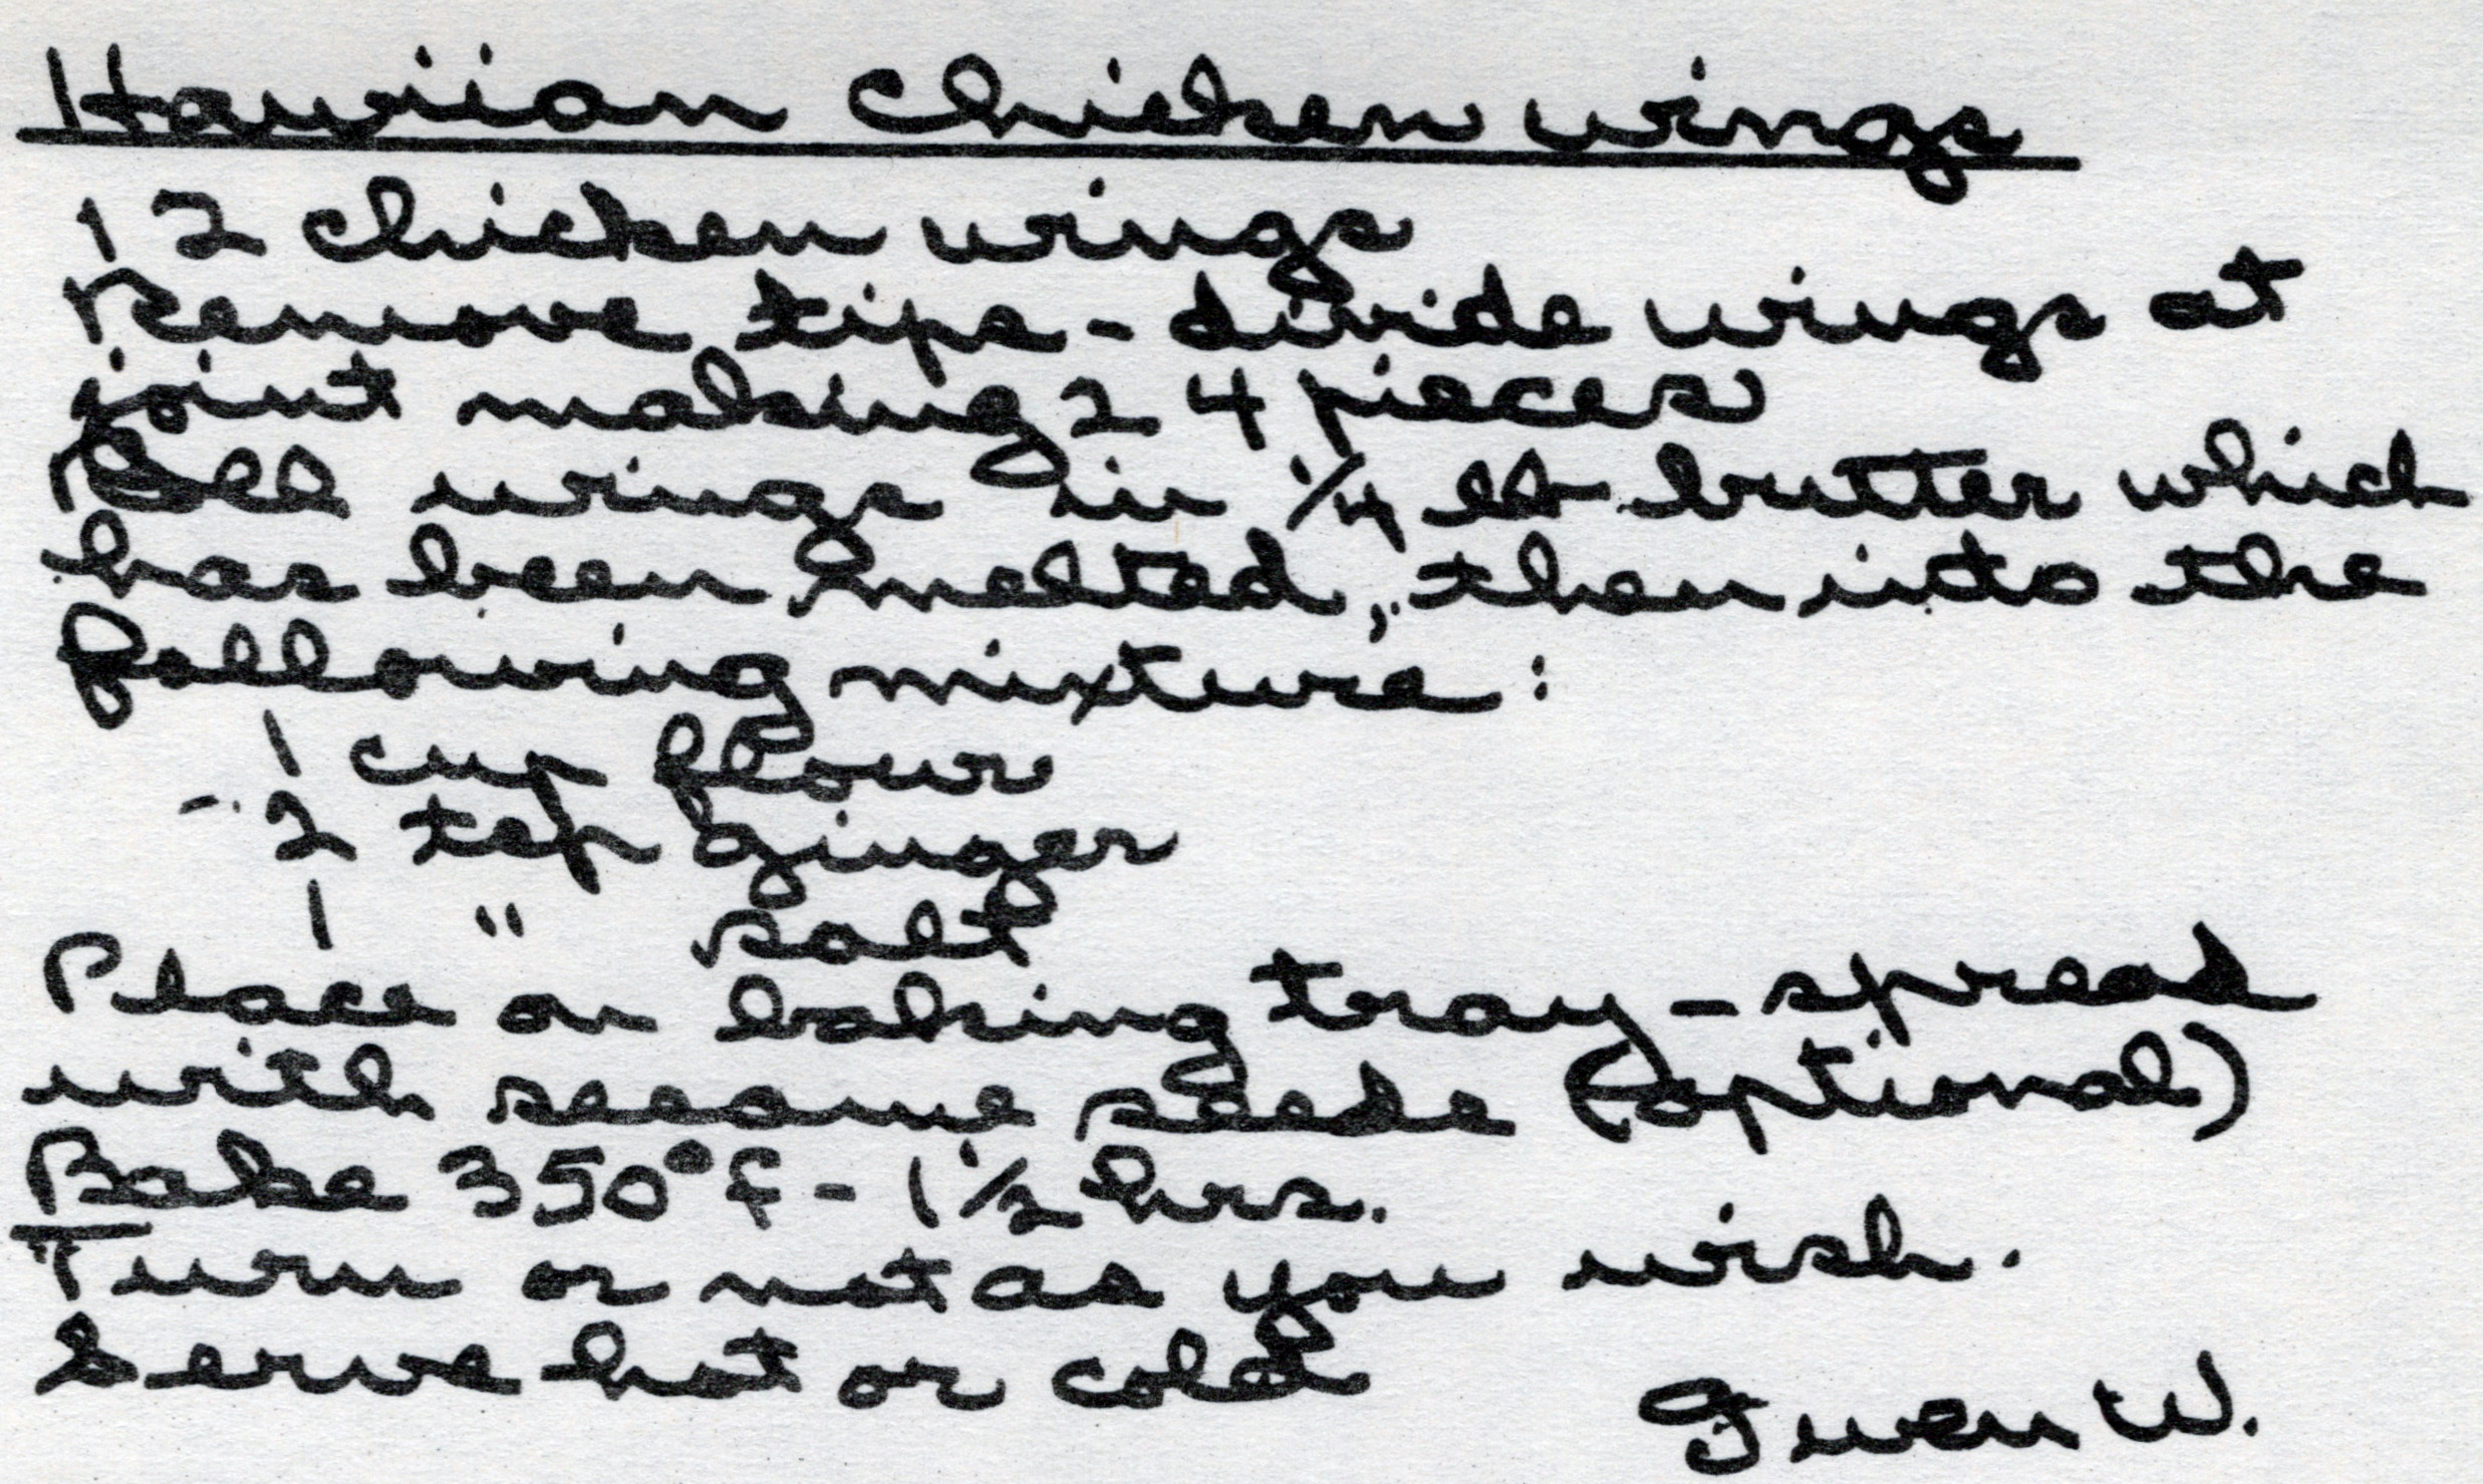 Hawiian Chicken wings
12 chicken wings
Remove tips - divide wings at
joint making 24 pieces
Roll wings in 1/4 lb butter which
has been melted, then into the
following mixture:
1 cup flour
- 2 tsp Ginger
1 " salt
Place on baking tray - spread
with sesame seeds (optional)
Bake 350° f - 1 1/2 hrs.
Turn or not as you wish.
Serve hot or cold
Gwen W.